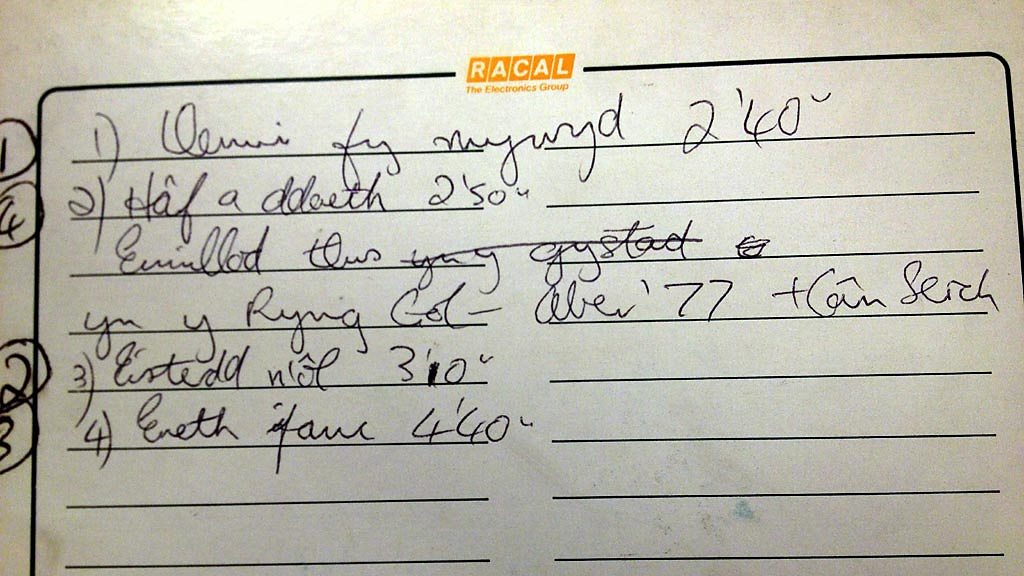 RACAL
The Electronics Group
1 1) fy mywyd 2'40"
4 2) Hâf a ddaeth 2'50"
Enillod tlws yng gystad
yn y Ryng Gol - Aber '77 + Cân Serch
2 3) Eistedd nôl 3'10"
3 4) Eneth ifanc 4'40"